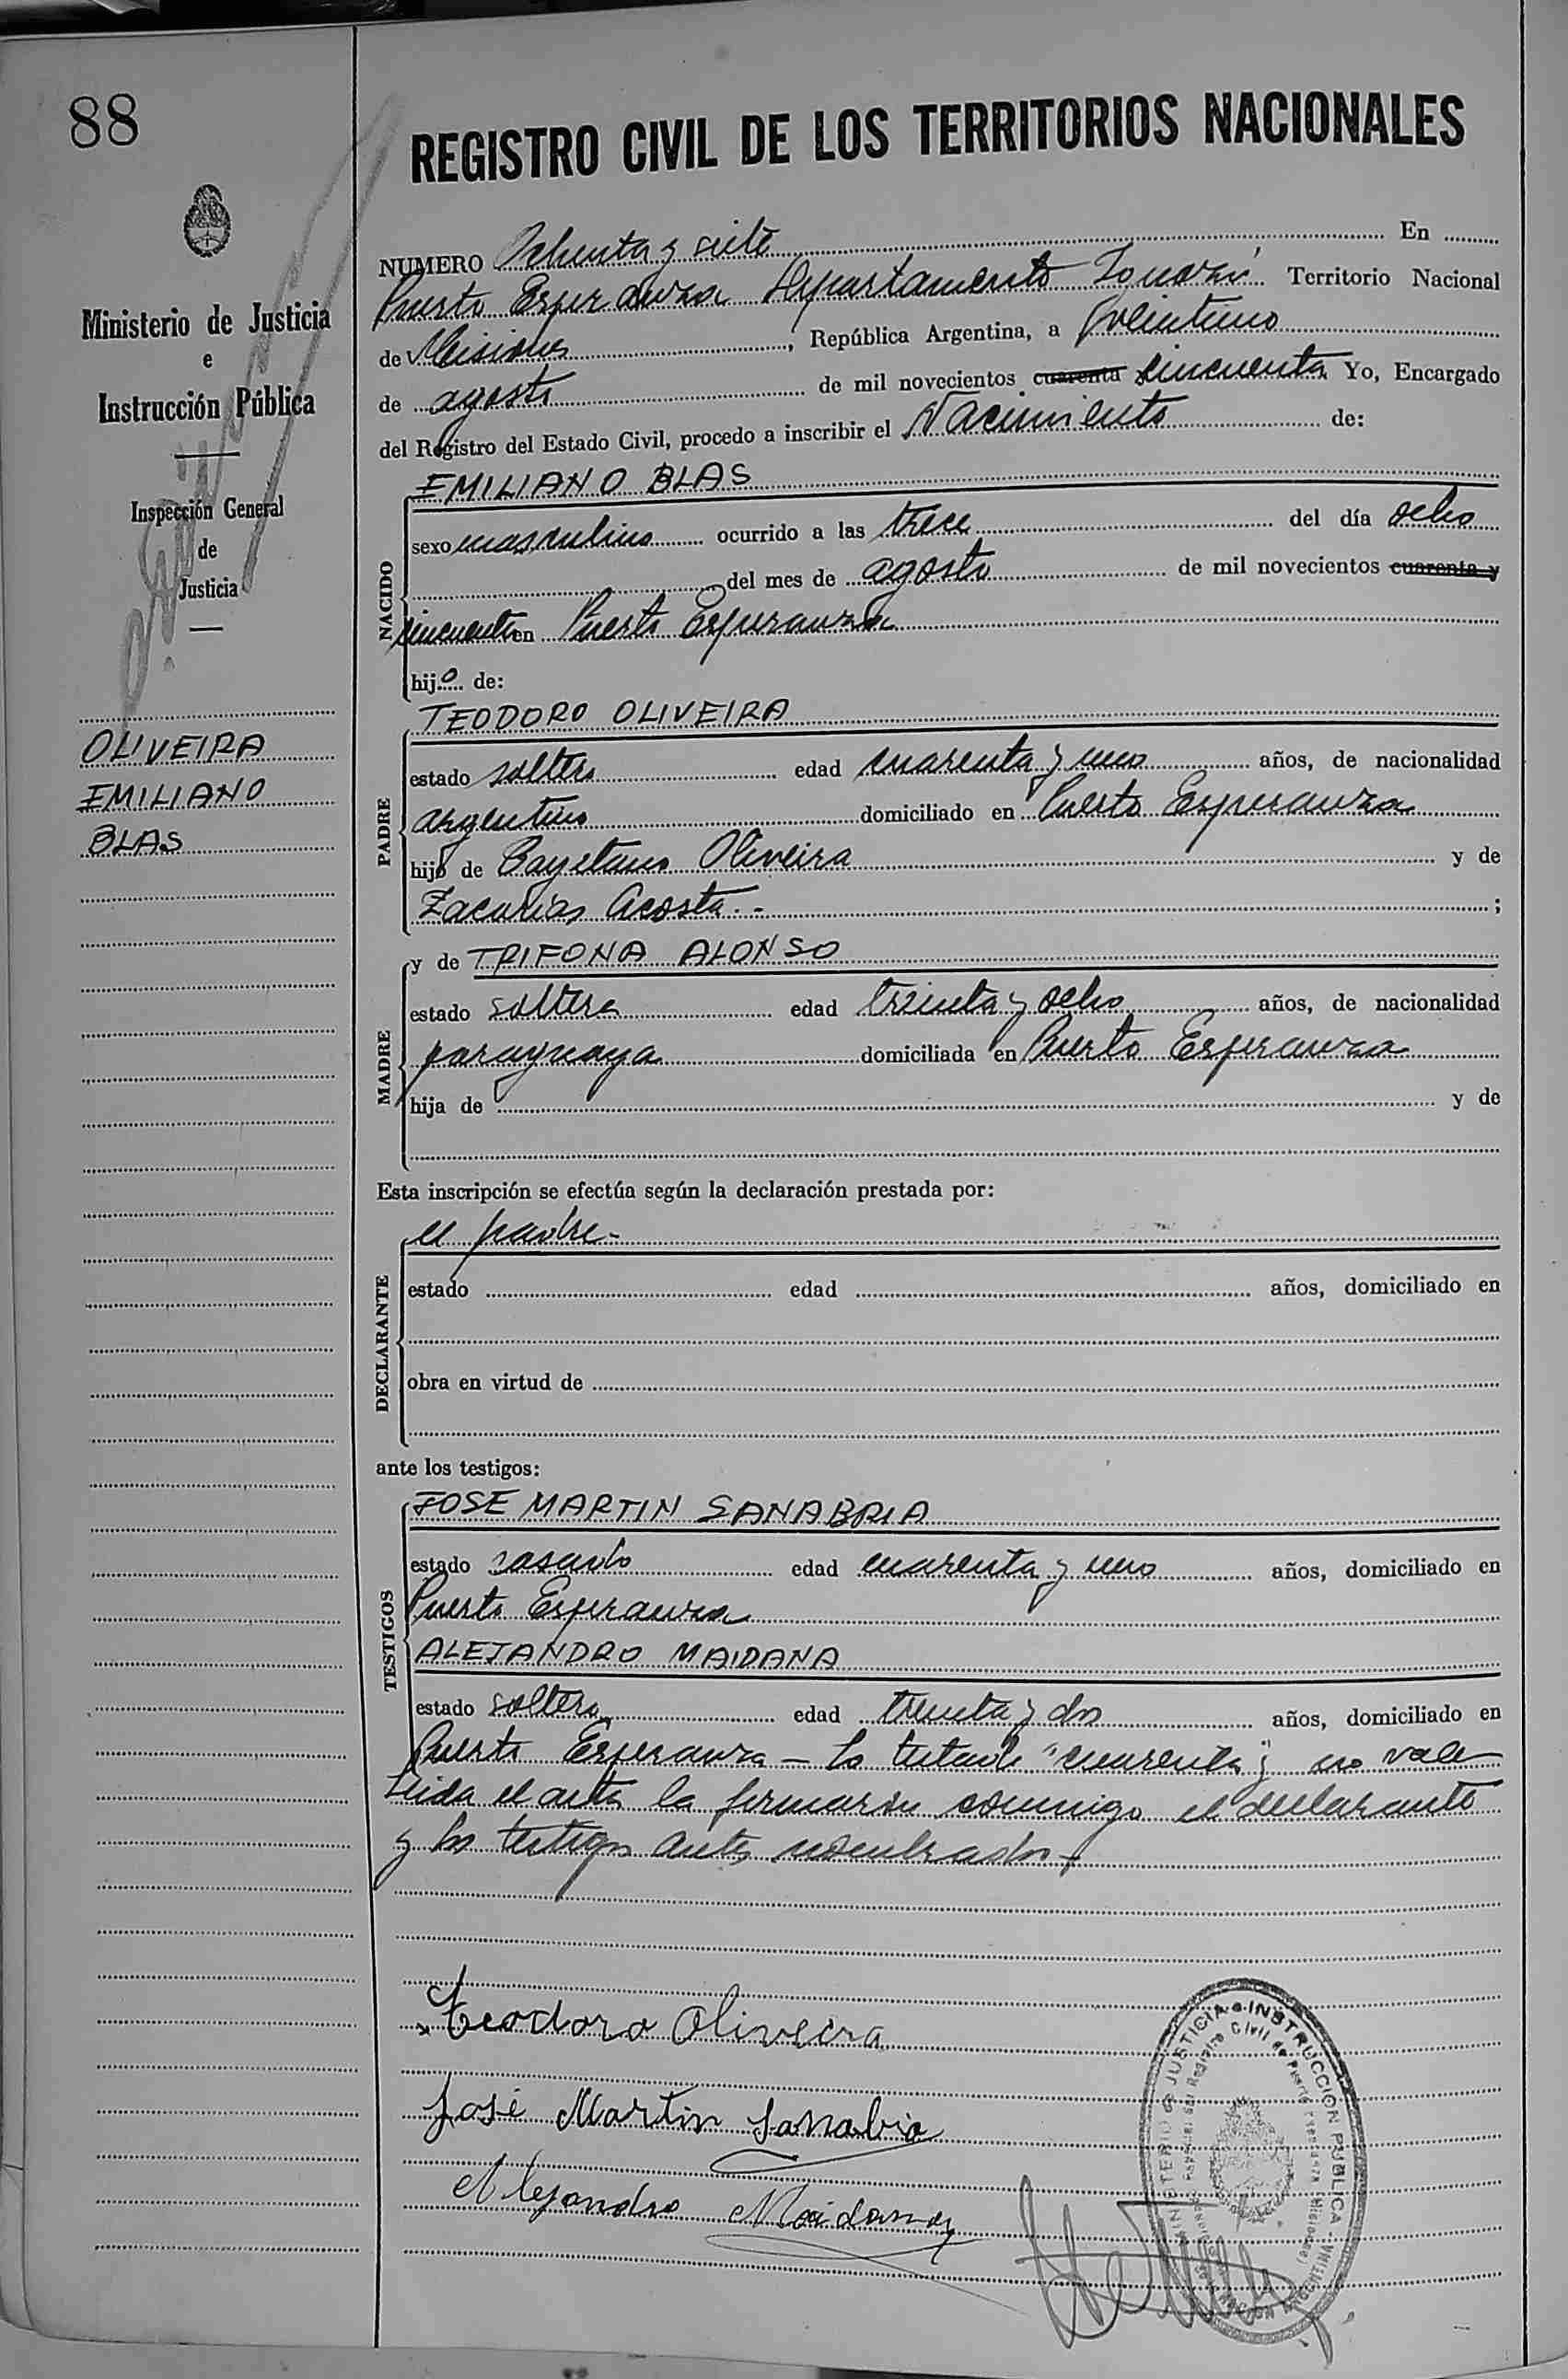 88
REGISTRO CIVIL DE LOS TERRITORIOS NACIONALES
Ministerio de Justicia
e
Instrucción Pública
Inspección General
de
Justicia
OLIVEIRA
EMILIANO
BLAS
NUMERO Ochenta y siete En
Puerto Esperanza Departamento Iguazú Territorio Nacional
de Misiones, República Argentina, a veintiuno
de agosto de mil novecientos cuarenta cincuenta Yo, Encargado
del Registro del Estado Civil, procedo a inscribir el Nacimiento de:
NACIDO
EMILIANO BLAS
sexo masculino ocurrido a las trece del día ocho
del mes de agosto de mil novecientos cuarenta y
cincuenta en Puerto Esperanza
hijo de:
PADRE
TEODORO OLIVEIRA
estado soltero edad cuarenta y uno años, de nacionalidad
argentino domiciliado en Puerto Esperanza
hijo de Cayetano Oliveira y de
Zacarias Acosta.- ;
MADRE
y de TRIFONA ALONSO
estado soltera edad treinta y ocho años, de nacionalidad
paraguaya domiciliada en Puerto Esperanza
hija de y de
Esta inscripción se efectúa según la declaración prestada por:
DECLARANTE
el padre-
estado edad años, domiciliado en
obra en virtud de
ante los testigos:
TESTIGOS
JOSE MARTIN SANABRIA
estado casado edad cuarenta y uno años, domiciliado en
Puerto Esperanza
ALEJANDRO MAIDANA
estado soltero edad treinta y dos años, domiciliado en
Puerto Esperanza - lo testado "cuarenta y no vale
Leida el acta la firmaron conmigo el declarante
y los testigos antes nombrados-
Teodoro Oliveira
José Martin Sanabria
Alejandro Maidana
MINISTERIO DE JUSTICIA e INSTRUCCION PUBLICA